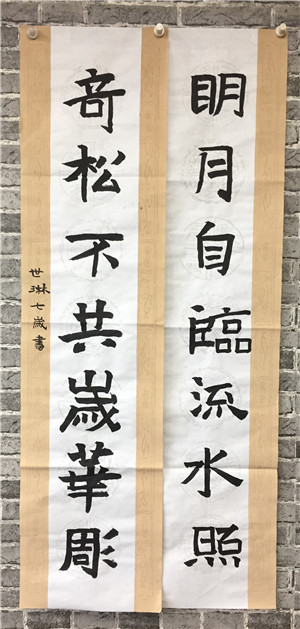 明月自臨流水照
奇松不共歲華彫
世琳七歲書